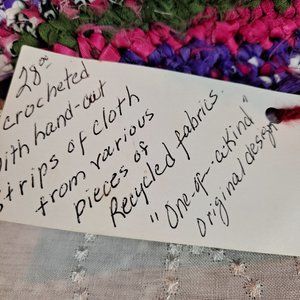 28.00
crocheted
with hand-cut
strips of cloth
from various
pieces of
Recycled fabrics.
"One-of-akind"
original design